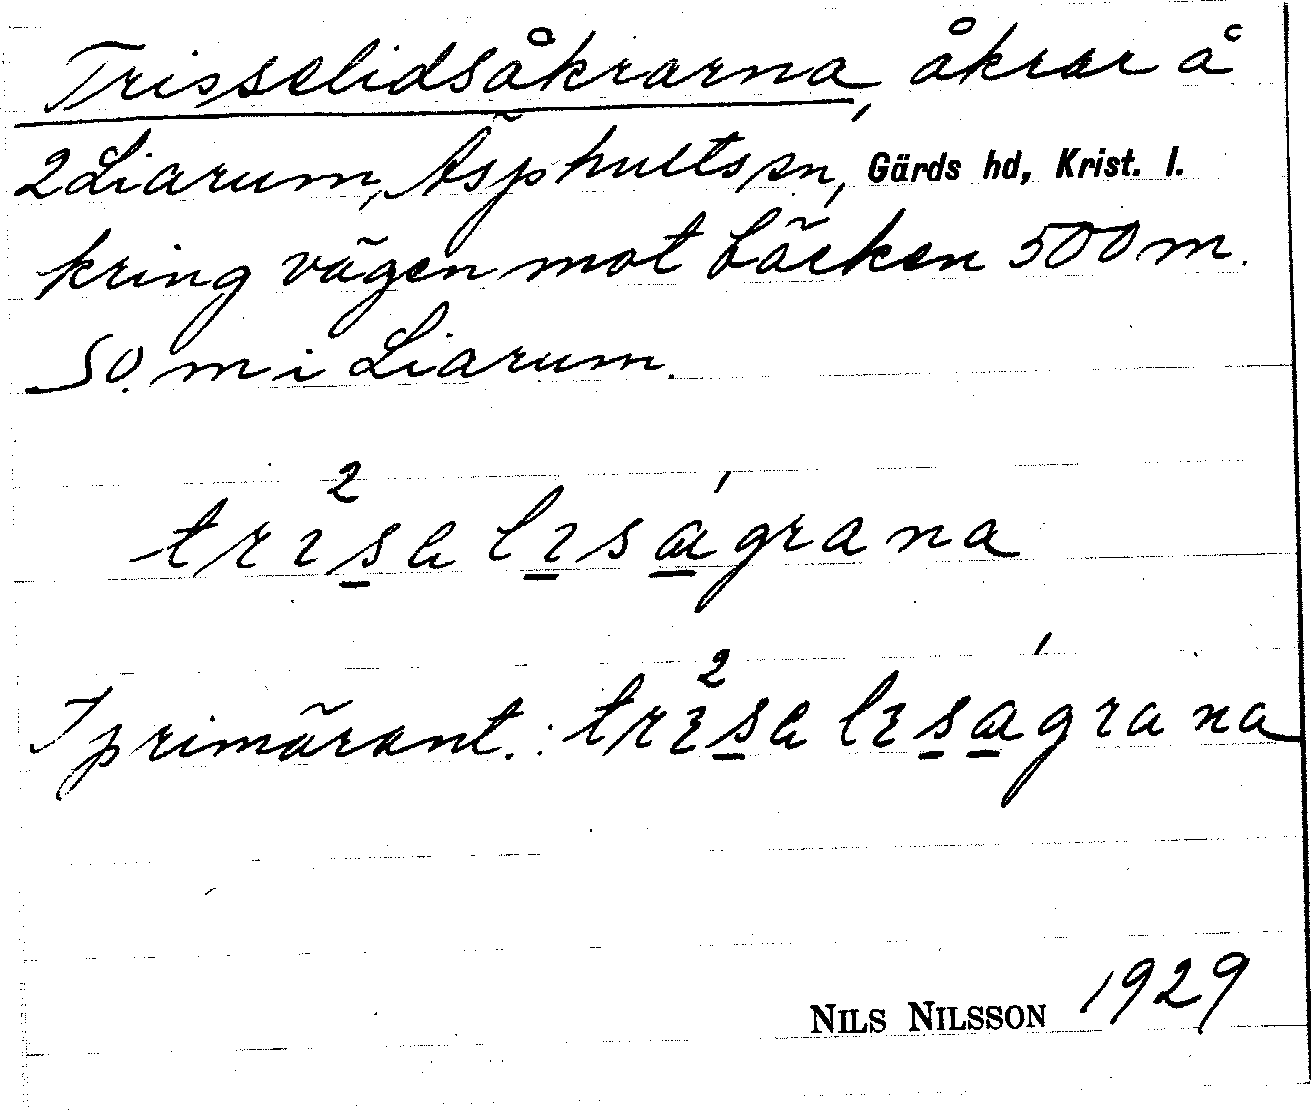 Trisselidsåkrarna, åkrar å
2 Liarum, Äsphults sn, Gärds hd, Krist. l.
kring vägen mot bäcken 500 m.
SO. m i Liarum.
trɪ²sa lɪságrana
I primärant.: trɪ²sa lɪságrana
NILS NILSSON 1929